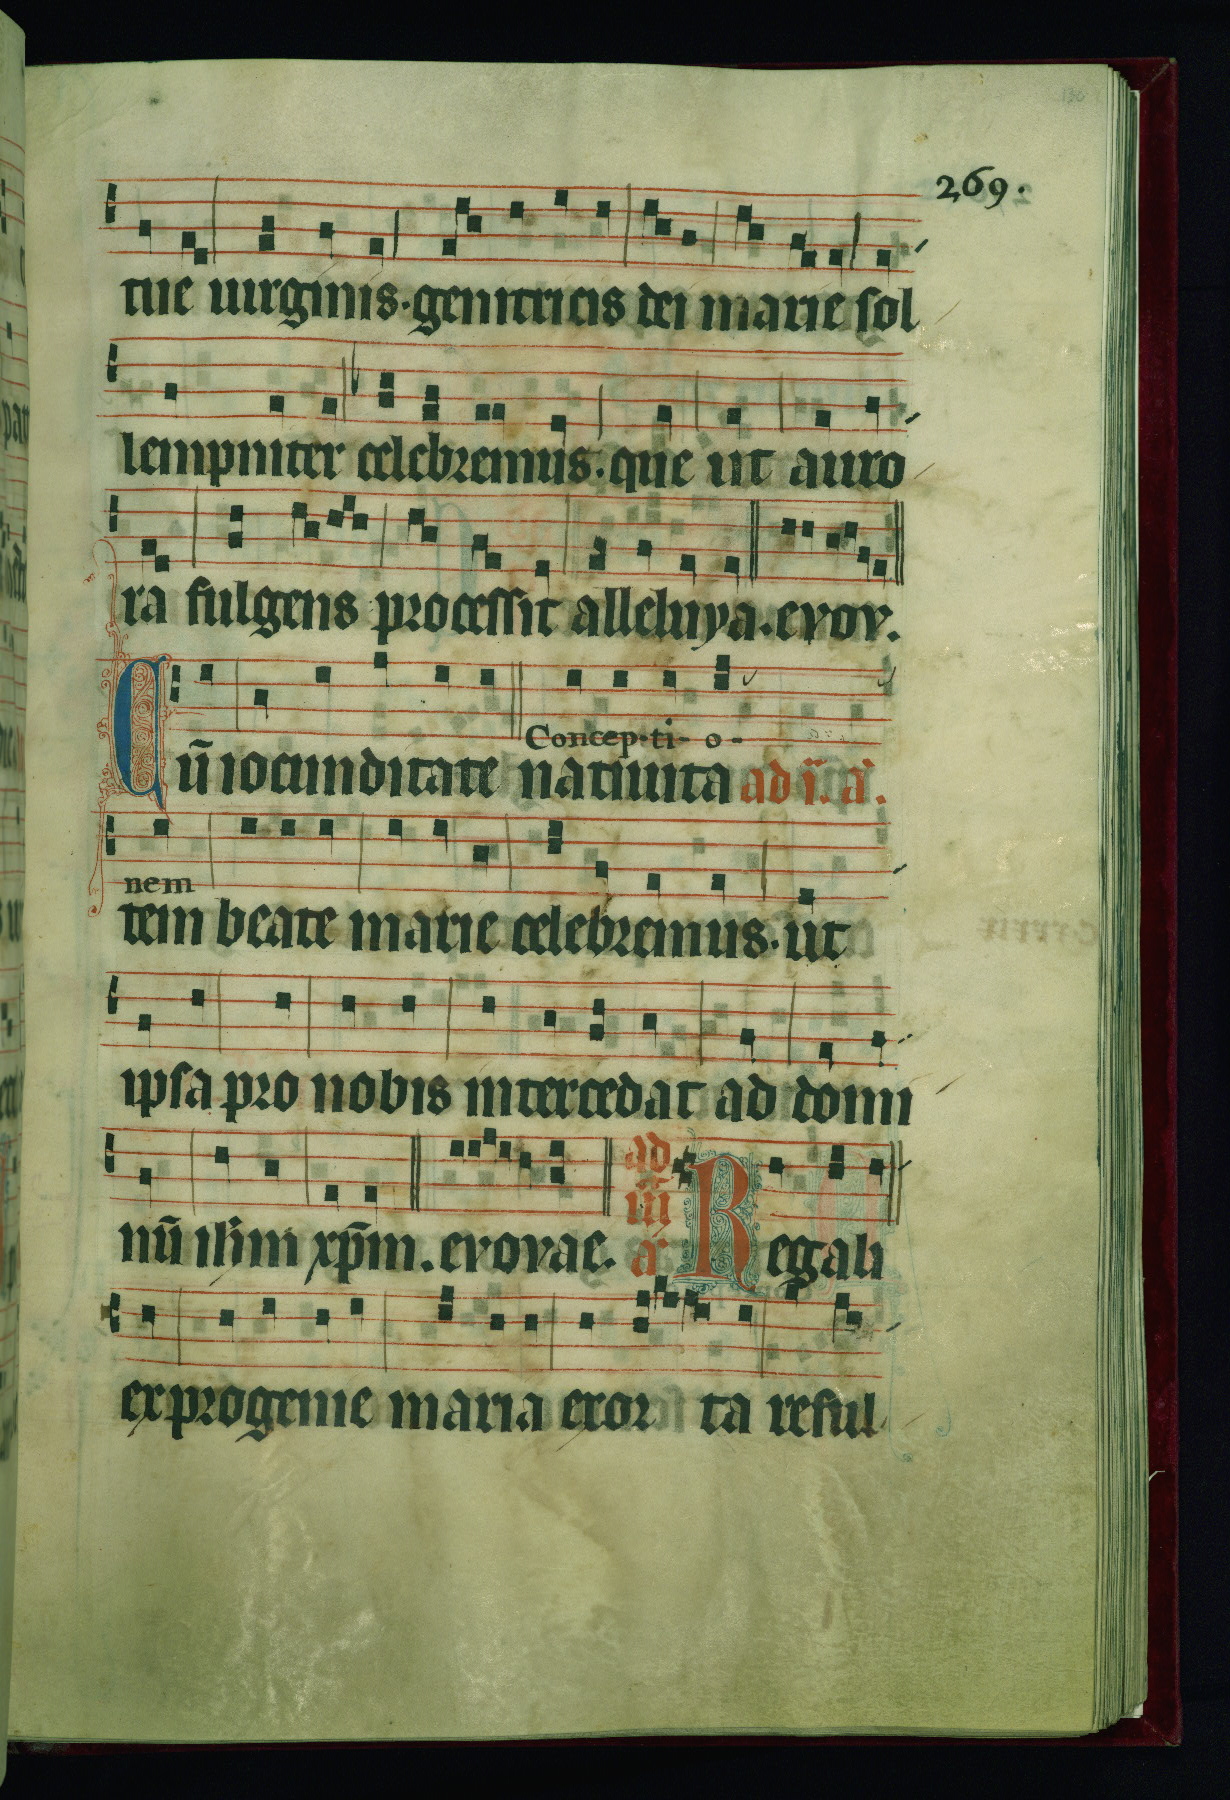 269.
tue uirginis. genitricis dei marie sol
lempniter celebremus. que ut auro
ra fulgens processit alleluya. evov.
Concep-ti-o-
Cū iocunditate natiuita ad ı̄. a.
nem
tem beate marie celebremus. ut
ipsa pro nobis intercedat ad domi
nū ihm xp̄m. evovae. ad iii a Regali
ex progenie maria exor ta reful